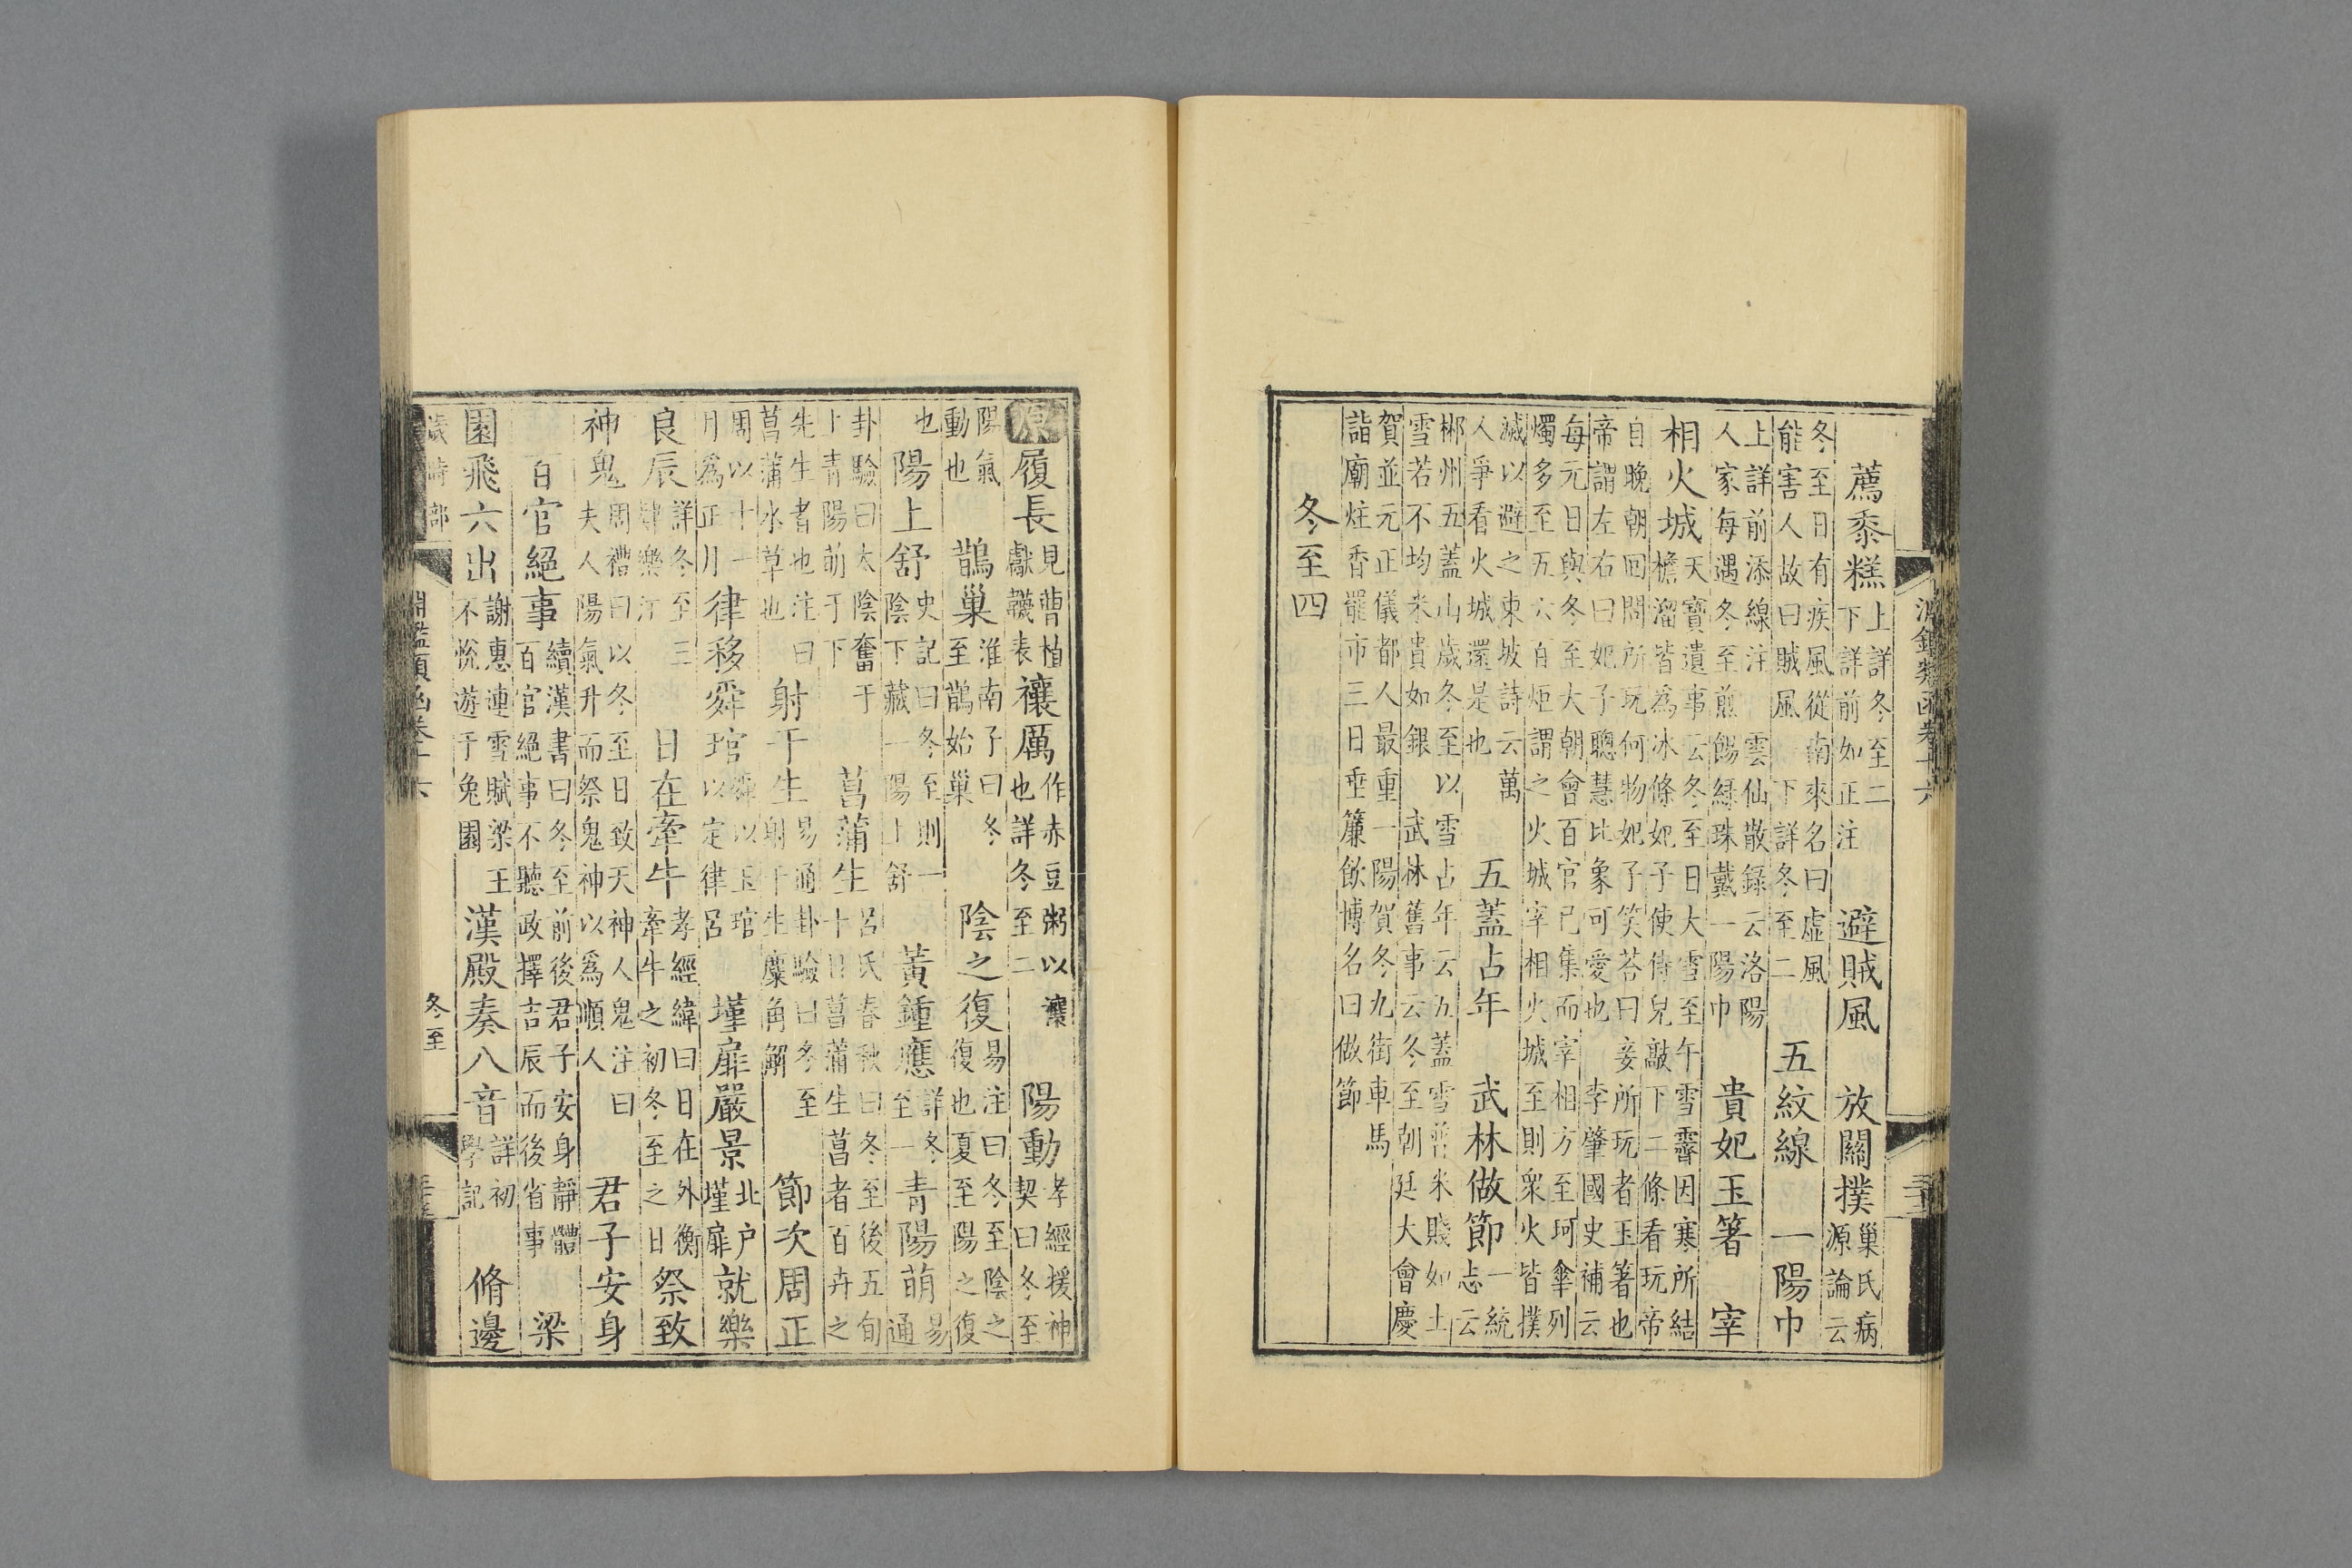 淵鑑類函卷十六
薦黍糕上詳冬至二下詳前如正注 避賊風 放關撲巢氏病源論云
冬至日有疾風從南來名曰虛風能害人故曰賊風 下詳冬至二 五紋線 一陽巾
上詳前添線注 雲仙散錄云洛陽人家每遇冬至煎餳綠珠戴一陽巾 貴妃玉箸 宰
相火城天寶遺事云冬至日大雪至午雪霽因寒所結檐溜皆為冰條妃子使侍兒敲下二條看玩帝
自晚朝回問所玩何物妃子笑荅曰妾所玩者玉箸也帝謂左右曰妃子聰慧比象可愛也 李肇國史補云
每元日與冬至大朝會百官已集而宰相方至珂傘列燭多至五六百炬謂之火城宰相火城至則眾火皆撲
滅以避之東坡詩云萬人爭看火城還是也 五蓋占年 武林做節一統志云
郴州五蓋山歲冬至以雪占年云五蓋雪普米賤如土雪若不均米貴如銀 武林舊事云冬至朝廷大會慶
賀並元正儀都人最重一陽賀冬九街車馬詣廟炷香罷市三日垂簾飲博名曰做節
冬至四
原履長見曹植獻韈表 禳厲作赤豆粥以禳也詳冬至二 陽動孝經援神契曰冬至
陽氣動也 鵲巢淮南子曰冬至鵲始巢 陰之復易注曰冬至陰之復也夏至陽之復
也 陽上舒史記曰冬至則一陰下藏一陽上舒 黃鍾應詳冬至一 青陽萌易通
卦驗曰太陰奮于上青陽萌于下 菖蒲生呂氏春秋曰冬至後五旬十日菖蒲生菖者百卉之
先生者也注曰菖蒲水草也 射干生易通卦驗曰冬至射干生麋角解 節次周正
周以十一月爲正月 律移舜琯舜以玉琯以定律呂 墐扉嚴景北户墐扉 就樂
良辰詳冬至三肆樂注 日在牽牛孝經緯曰日在外衡牽牛之初冬至之日 祭致
神鬼周禮曰以冬至日致天神人鬼注曰夫人陽氣升而祭鬼神以爲順人 君子安身
百官絕事續漢書曰冬至前後君子安身靜體百官絕事不聽政擇吉辰而後省事 梁
園飛六出謝惠連雪賦梁王不悅遊于兔園 漢殿奏八音詳初學記 脩邊
歲時部 淵鑑類函卷十六 冬至